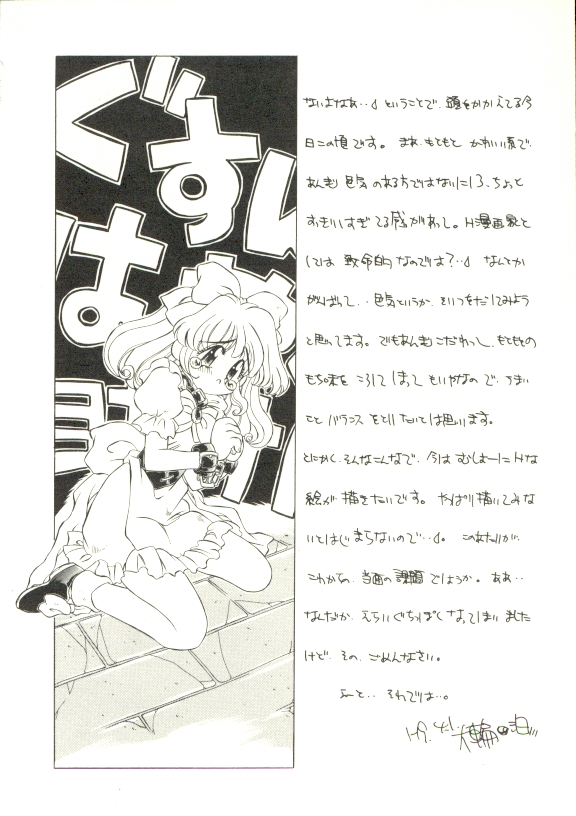 ないよなあ…。ということで、頭をかかえてる今
日この頃です。まぁ、もともと かわいい系で
あんまり 色気 のある方ではないにしろ、ちょっと
すぎてる感があって。H漫画家と
しては 致命的 なのでは?…。なんとか
がんばって、色気というか、そいつをだしてみよう
と思ってます。でもあんまりこだわって、もともとの
もち味を ころして しまって も いやなの で、うまい
こと バランス をとりたいとは思います。
とにかく、そんなこんなで、今は むしょーに Hな
絵が 描きたいです。やっぱり描いてみな
いとはじまらないので…。このあたりが、
これからの、当面の 課題 でしょうか。ああ…
なんだか、えらいぐちっぽく なってしまいました
けど、その、ごめんなさい。
えーと… それでは…。
ぐすん
は